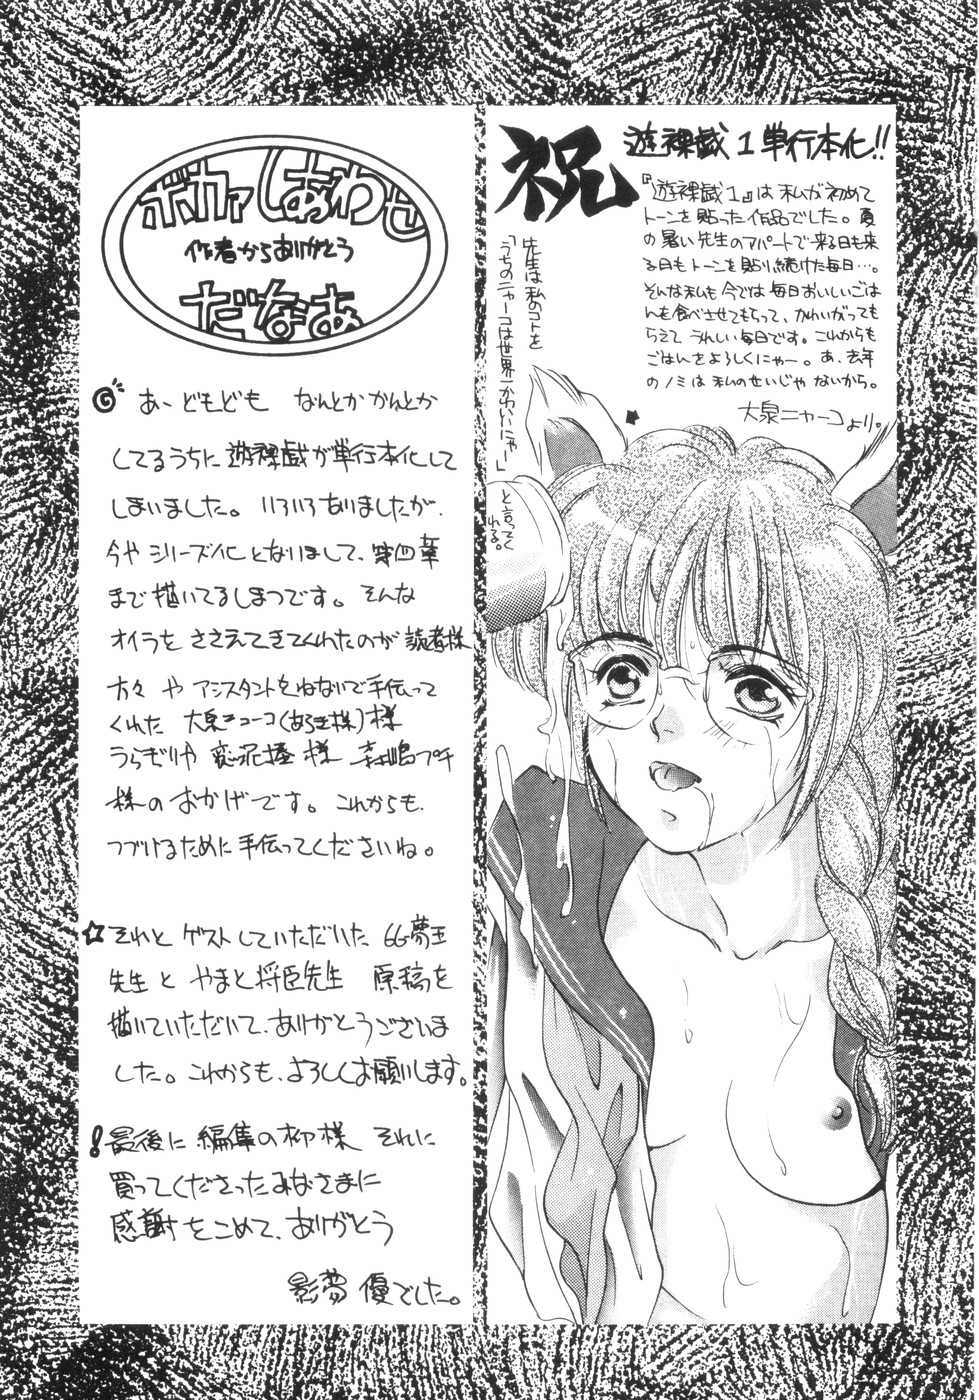 祝
遊裸戯1単行本化!!
『遊裸戯1』は私が初めて
トーンを貼った作品でした。夏
の暑い先生のアパートで来る日も来
る日もトーンを貼り続けた毎日…。
そんな私も今では毎日おいしいごは
んを食べさせてもらって、かわいがっても
らえてうれしい毎日です。これからも
ごはんをよろしくにゃー。あ、去年
のノミは私のせいじゃないから。
大泉ニャーコより。
先生は私のコトを
「うちのニャーコは世界一かわいいにゃー」
と言ってく
れる。
ボカァしあわせ
作者からありがとう
だなあ
あーどもども なんとかかんとか
してるうちに遊裸戯が単行本化して
しまいました。いろいろありましたが、
今やシリーズ化となりまして、第四章
まで描いてるしまつです。そんな
オイラをささえてきてくれたのが読者様
方々やアシスタントをねないで手伝って
くれた 大泉ニャーコ(あらき様)様
うらぎりや 泥棒様 森嶋プチ
様のおかげです。これからも、
つづけるために手伝ってくださいね。
☆それとゲストしていただいた GG夢王
先生とやまと将臣先生 原稿を
描いていただいて、ありがとうございま
した。これからも、よろしくお願いします。
!最後に編集の柳様 それに
買ってくださったみなさまに
感謝をこめて、ありがとう
影夢 優でした。